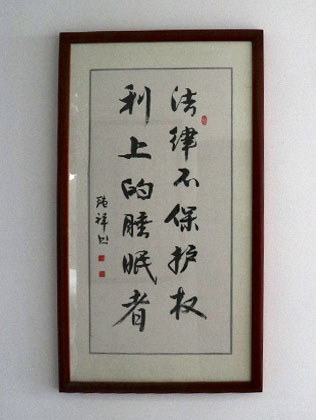 法律不保护权
利上的睡眠者